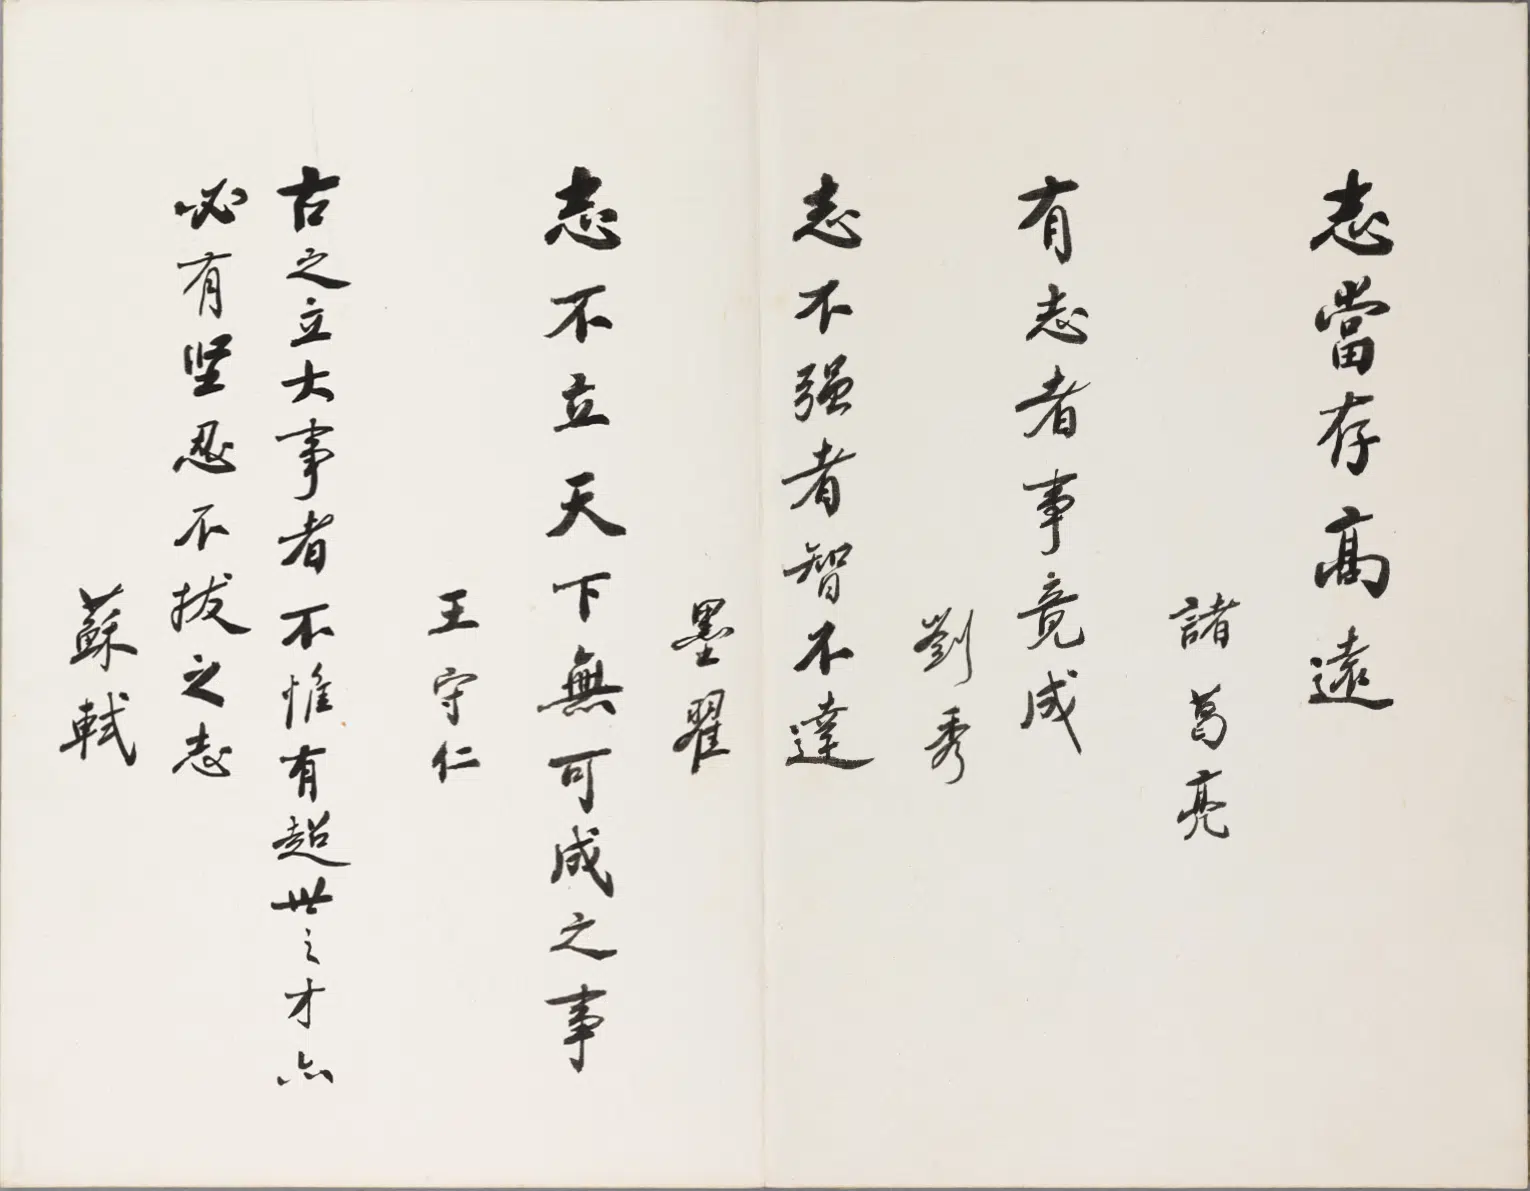 志當存高遠
諸葛亮
有志者事竟成
劉秀
志不强者智不達
墨翟
志不立天下無可成之事
王守仁
古之立大事者不惟有超世之才亦
必有坚忍不拔之志
蘇軾